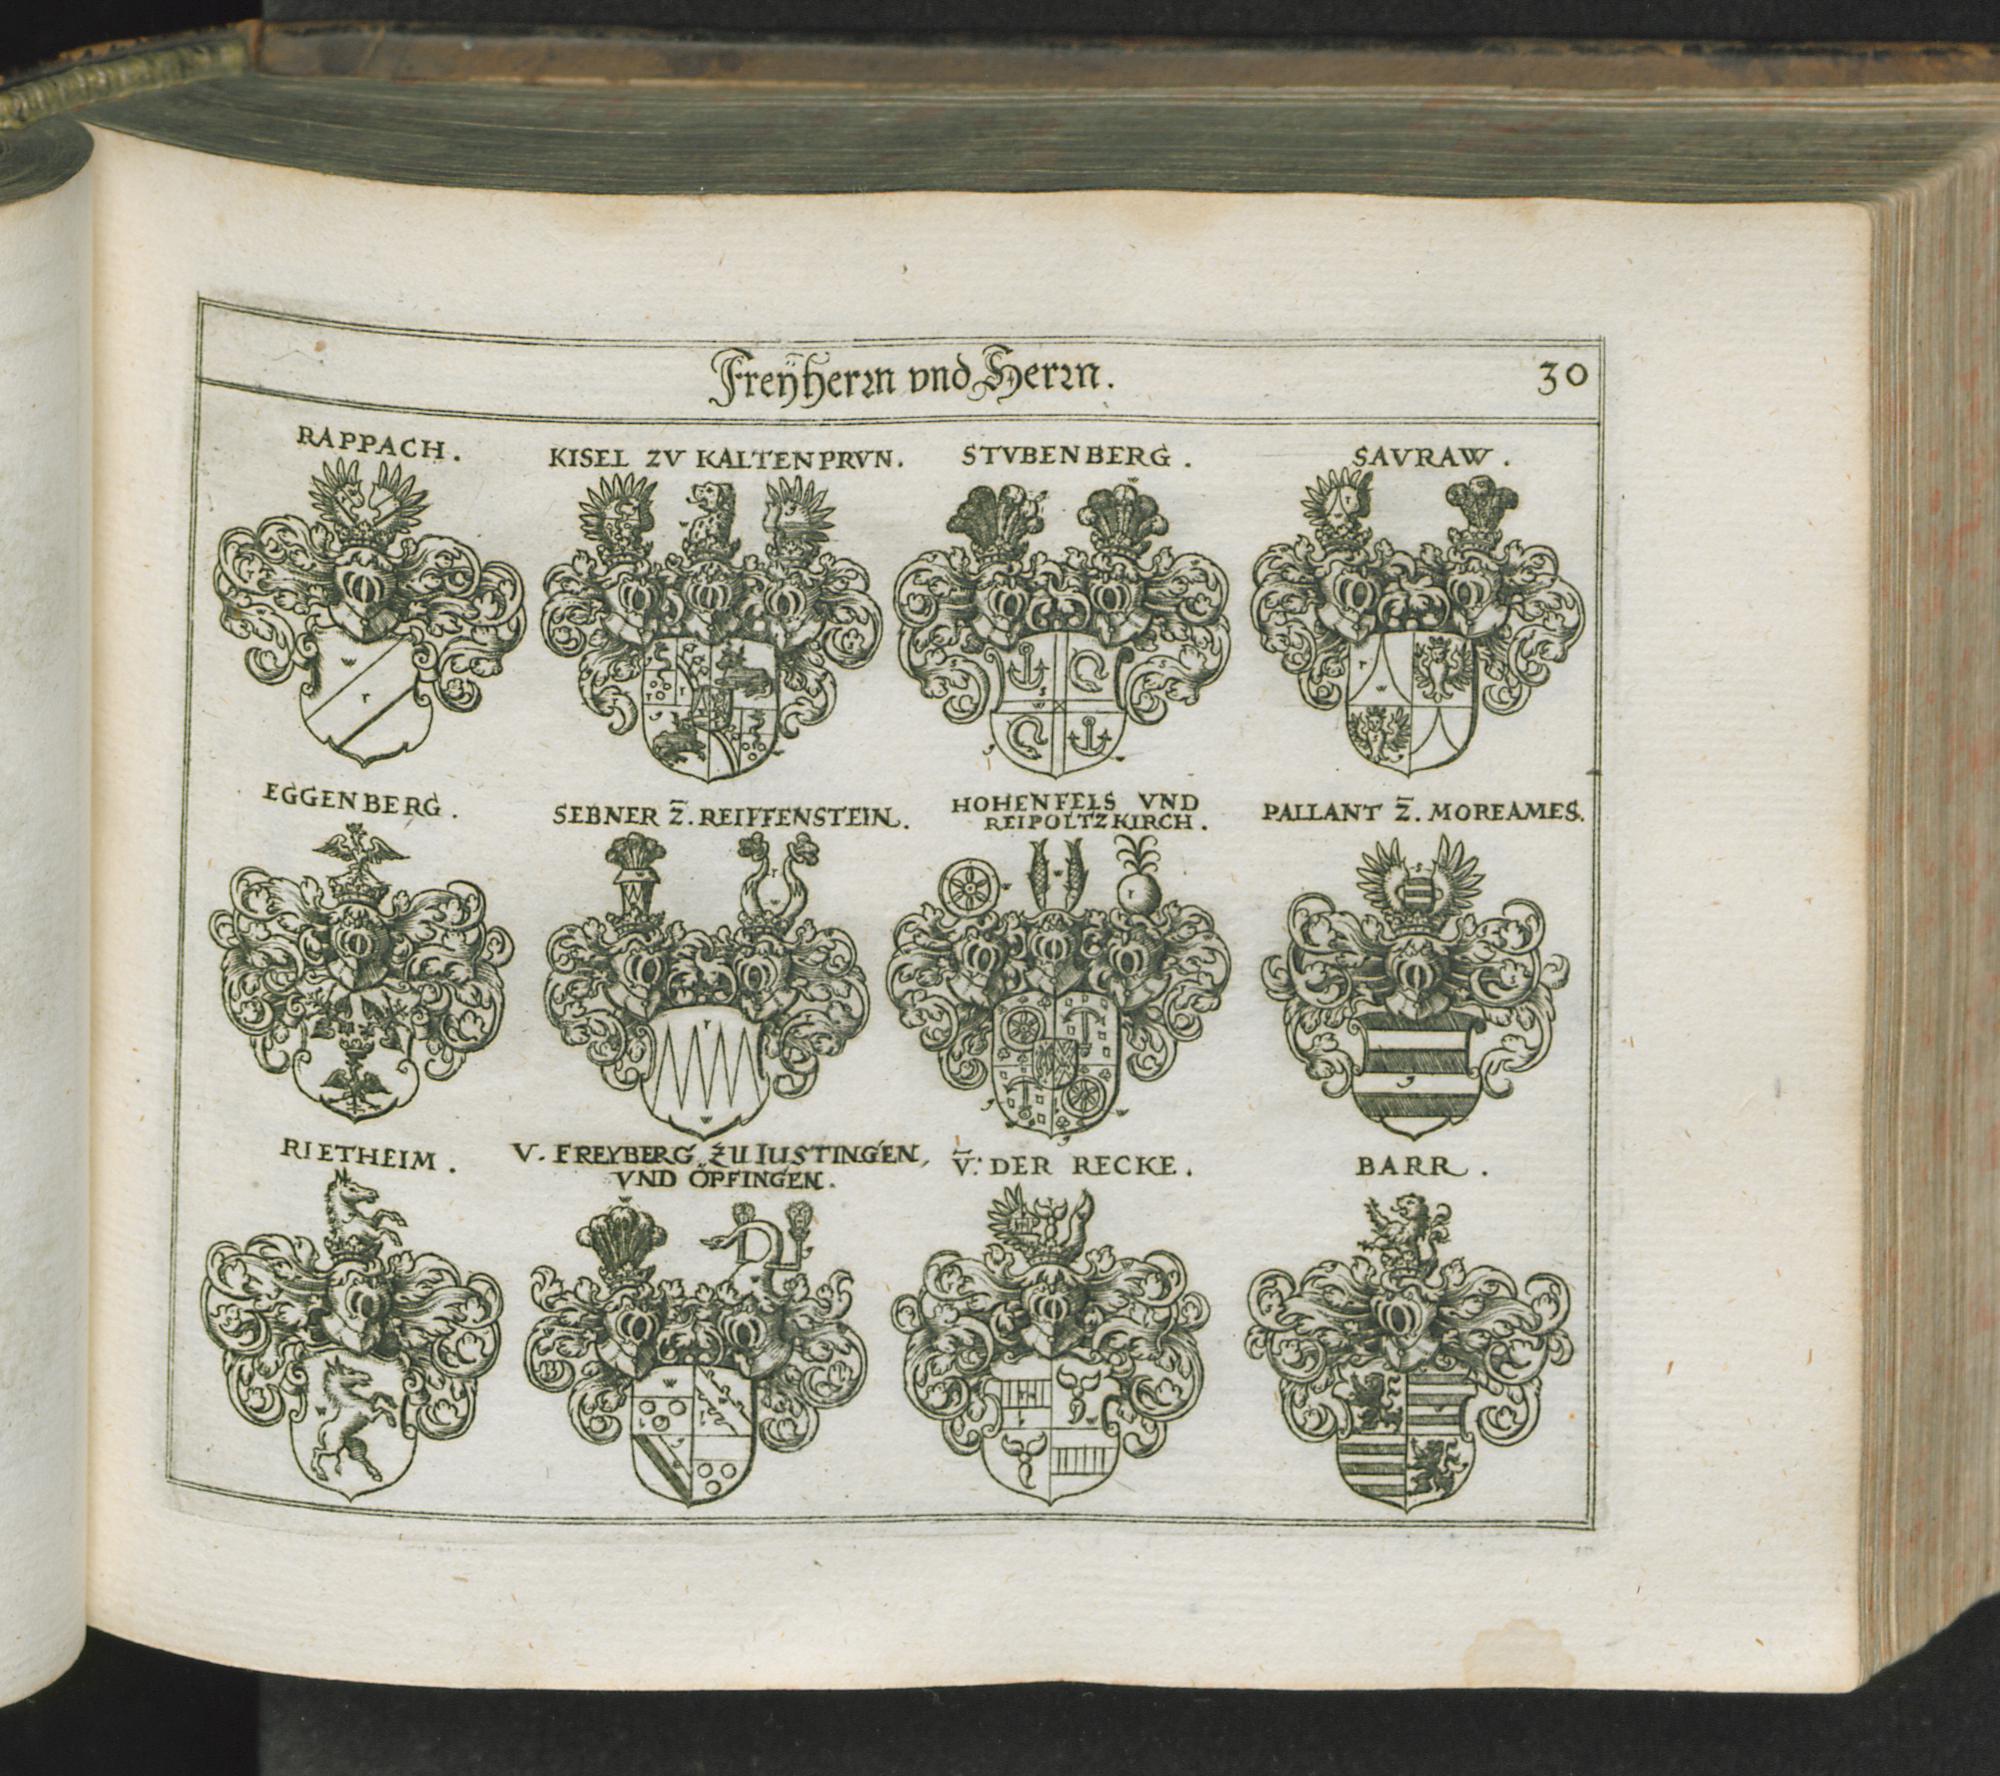 Freÿherrn vnd Herrn.
30
RAPPACH.
KISEL ZV KALTENPRVN.
STVBENBERG.
SAVRAW.
EGGENBERG.
SEBNER Z̄. REIFFENSTEIN.
HOHENFELS VND
REIPOLTZKIRCH.
PALLANT Z̄. MOREAMES.
RIETHEIM.
V. FREYBERG ZU IUSTINGEN,
VND ÖPFINGEN.
V̄. DER RECKE.
BARR.